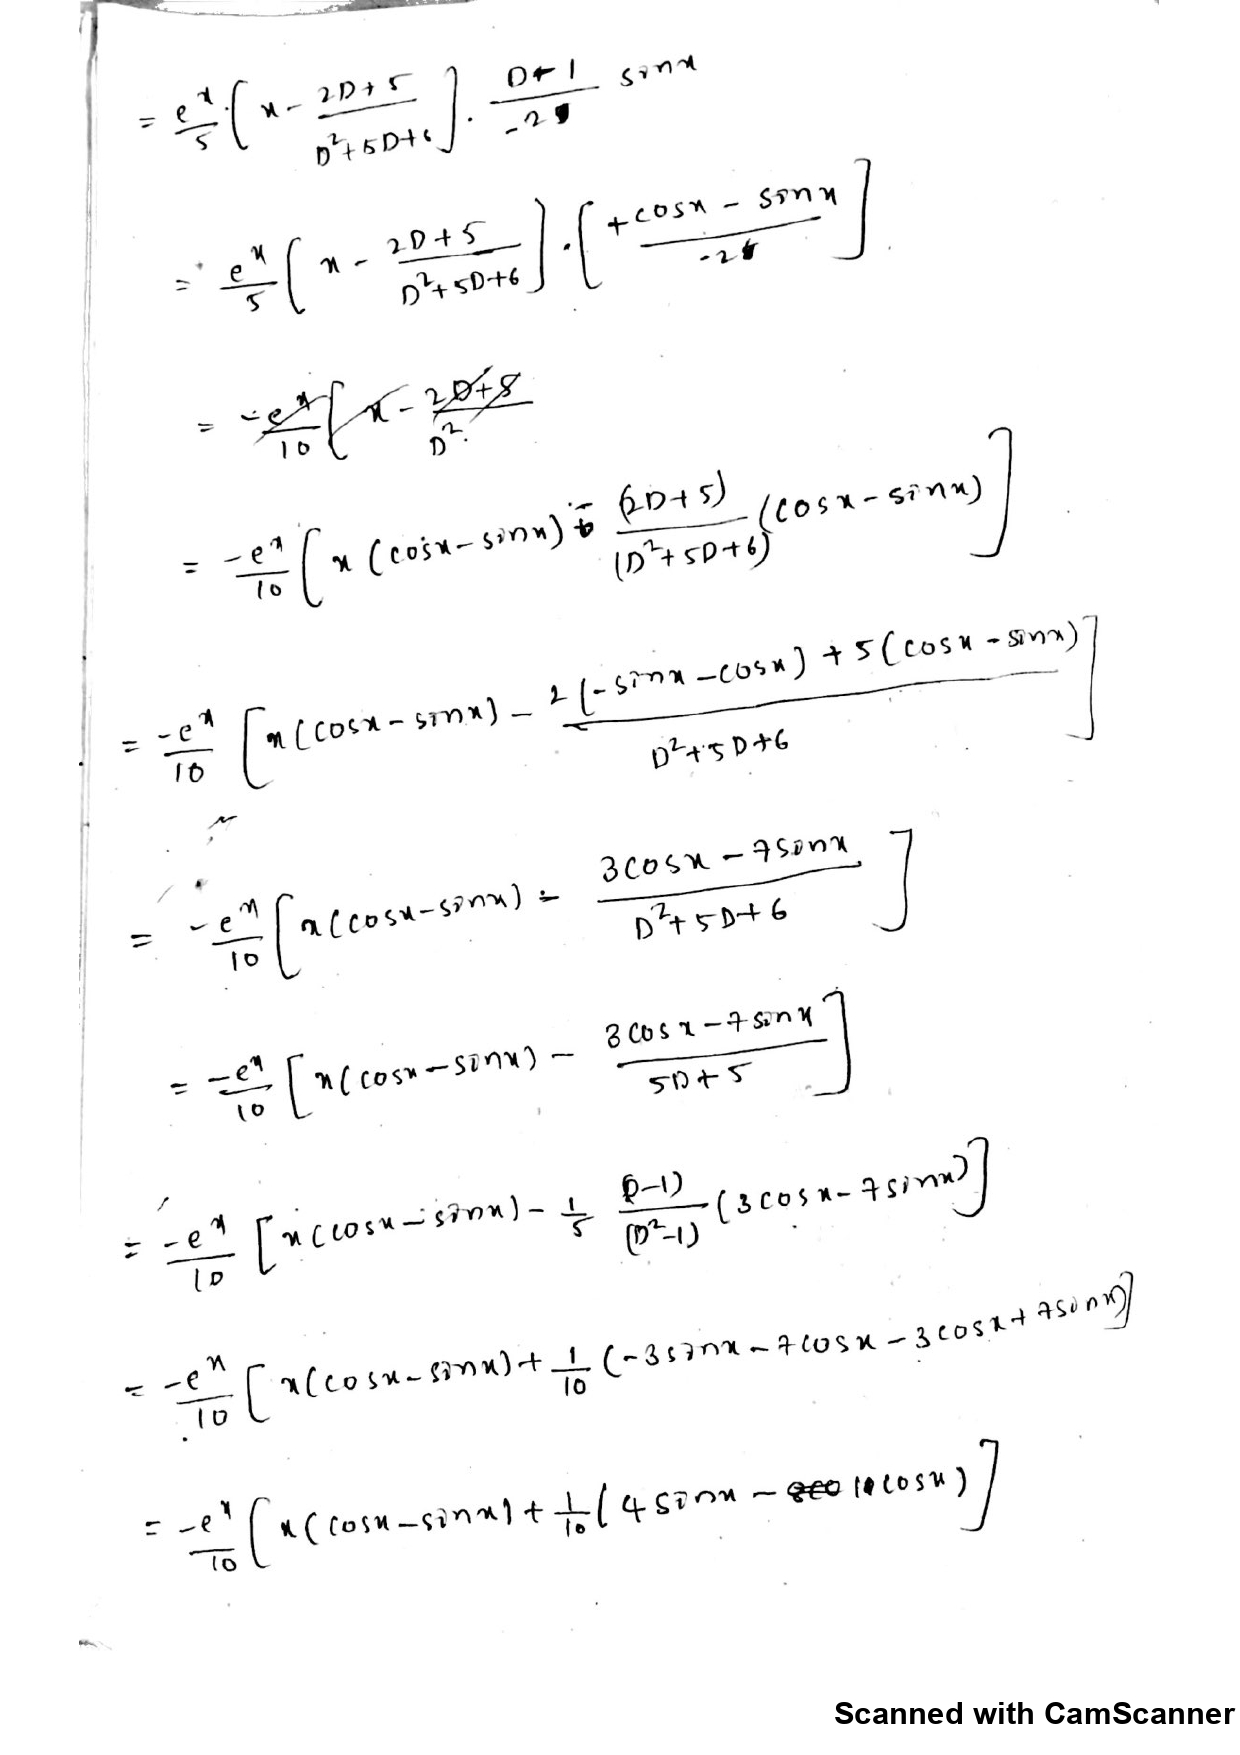 = e^x/5 [x - (2D+5)/(D²+5D+6)] . (D+1)/(-2) sinx
= e^x/5 [x - (2D+5)/(D²+5D+6)] . [(+cosx - sinx)/(-2)]
= -e^x/10 [x - (2D+5)/D²
= -e^x/10 [x(cosx-sinx) - (2D+5)/(D²+5D+6) (cosx-sinx)]
= -e^x/10 [x(cosx-sinx) - (2(-sinx-cosx)+5(cosx-sinx))/(D²+5D+6)]
= -e^x/10 [x(cosx-sinx) - (3cosx-7sinx)/(D²+5D+6)]
= -e^x/10 [x(cosx-sinx) - (3cosx-7sinx)/(5D+5)]
= -e^x/10 [x(cosx-sinx) - 1/5 (D-1)/(D²-1) (3cosx-7sinx)]
= -e^x/10 [x(cosx-sinx) + 1/10 (-3sinx-7cosx-3cosx+7sinx)]
= -e^x/10 [x(cosx-sinx) + 1/10 (4sinx - 10cosx)]
Scanned with CamScanner